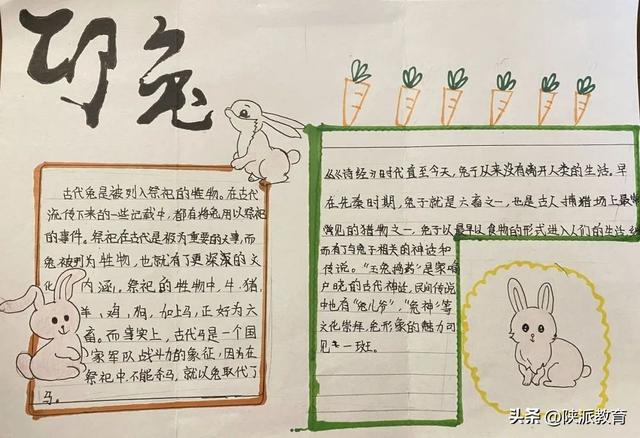 卯兔
古代兔是被列入祭祀的牲物。在古代
流传下来的一些记载中，都有将兔用以祭祀
的事件。祭祀在古代是极为重要的大事，而
兔被列为牲物，也就有了更深深的文
化内涵。祭祀的牲物中，牛、猪、
羊、鸡、狗，加上马，正好为六
畜。而事实上，古代马是一个国
家军队战斗力的象征，因为在
祭祀中，不能杀马，就以兔取代了
马。
从《诗经》时代直至今天，兔子从来没有离开人类的生活。早
在先秦时期，兔子就是六畜之一，也是古人捕猎场上最
常见的猎物之一，兔子以最早以食物的形式进入人们的生活，
而有了与兔子相关的神话和
传说。“玉兔捣药”是家喻
户晓的古代神话，民间传说
中也有“兔儿爷”、“兔神”等
文化崇拜，兔形象的魅力可
见一班。
头条 @陕派教育